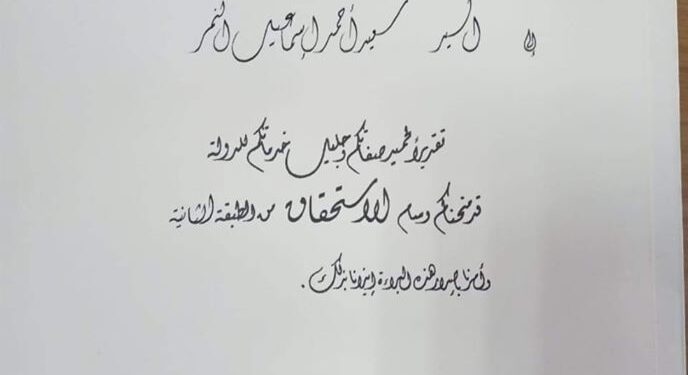 إلى السيد سعيد أحمد إسماعيل النمر
تقديراً لحميد صفاتكم وجليل خدماتكم للدولة
قد منحناكم وسام الاستحقاق من الطبقة الثانية
وأمرنا بإصدار هذه البراءة إيذانا بذلك .